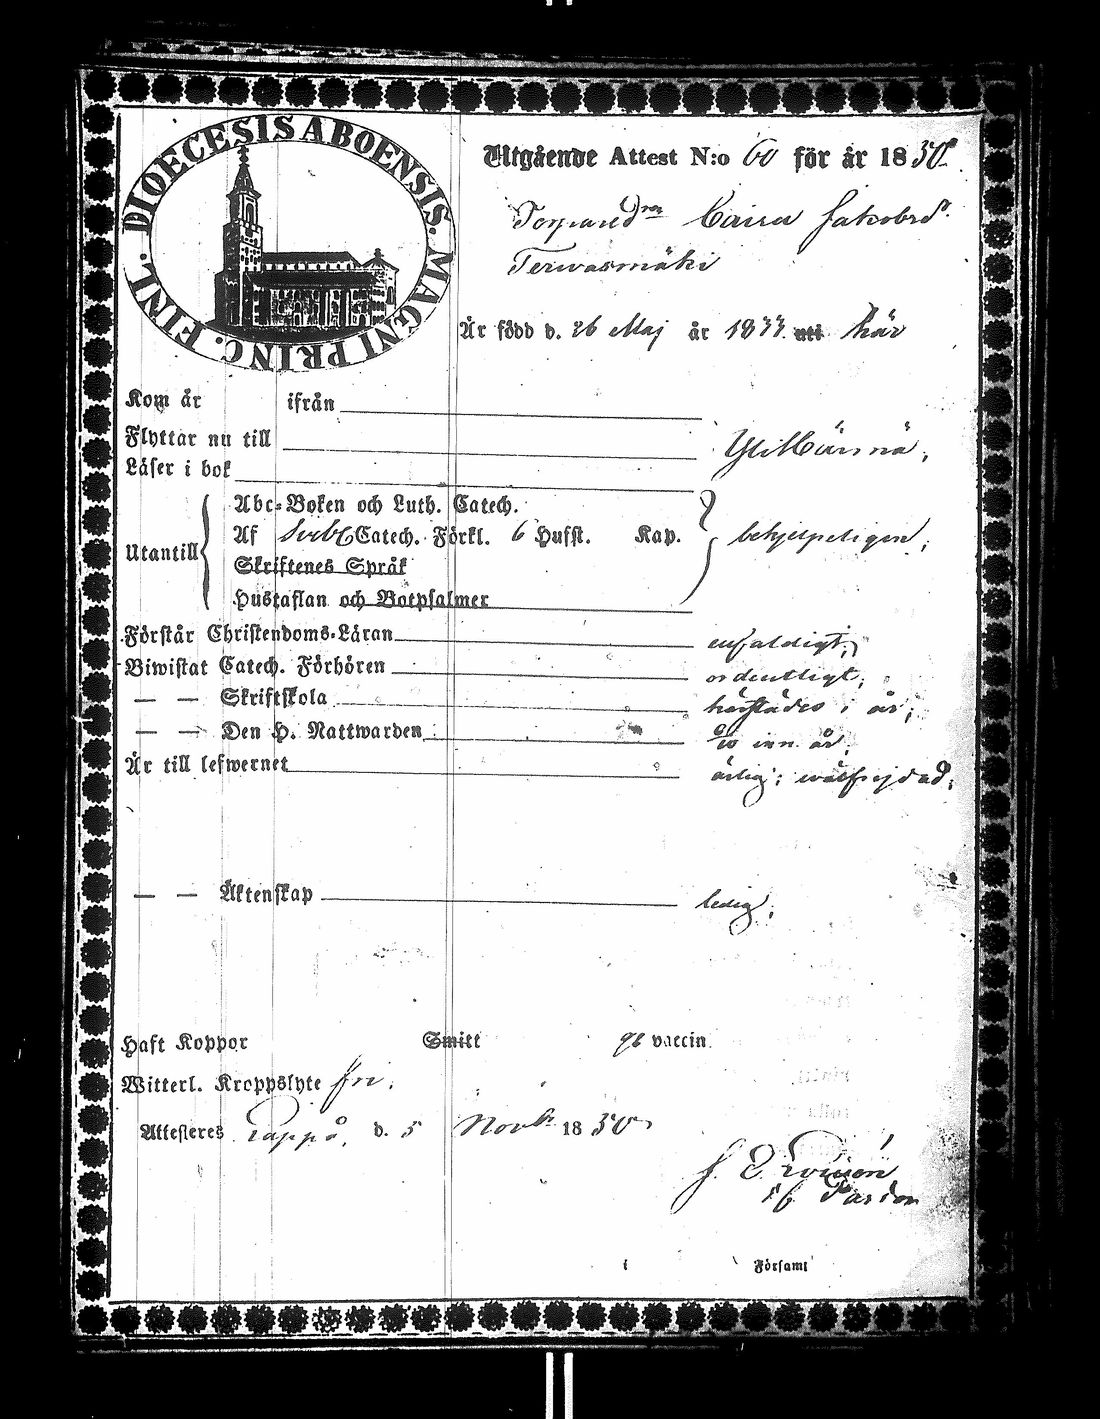 DIOECESIS ABOENSIS. MAGNI PRINC. FINL.
Utgående Attest N:o 60 för år 1850.
Caisa Jakobsdr.
Terwasmäki
Är född d. 26 Maj år 1833 uti här
Kom år ifrån
Flyttar nu till
Läser i bok
Abc-Boken och Luth. Catech.
Utantill Af Catech. Förkl. 6 Hufst. Kap. behjelpeligen;
Skriftenes Språk
Hustaflan och Botpsalmer
Förstår Christendoms-Läran enfaldigt;
Biwistat Catech. Förhören ordentligt;
— — Skriftskola härstädes i år;
— — Den H. Nattwarden inn. år;
Är till lefwernet ärlig; wälfrejdad;
— — Äktenskap ledig;
Haft Koppor Smitt vaccin.
Witterl. Kroppslyte fri;
Attesteres d. 5 Novbr 1850.
i Församl